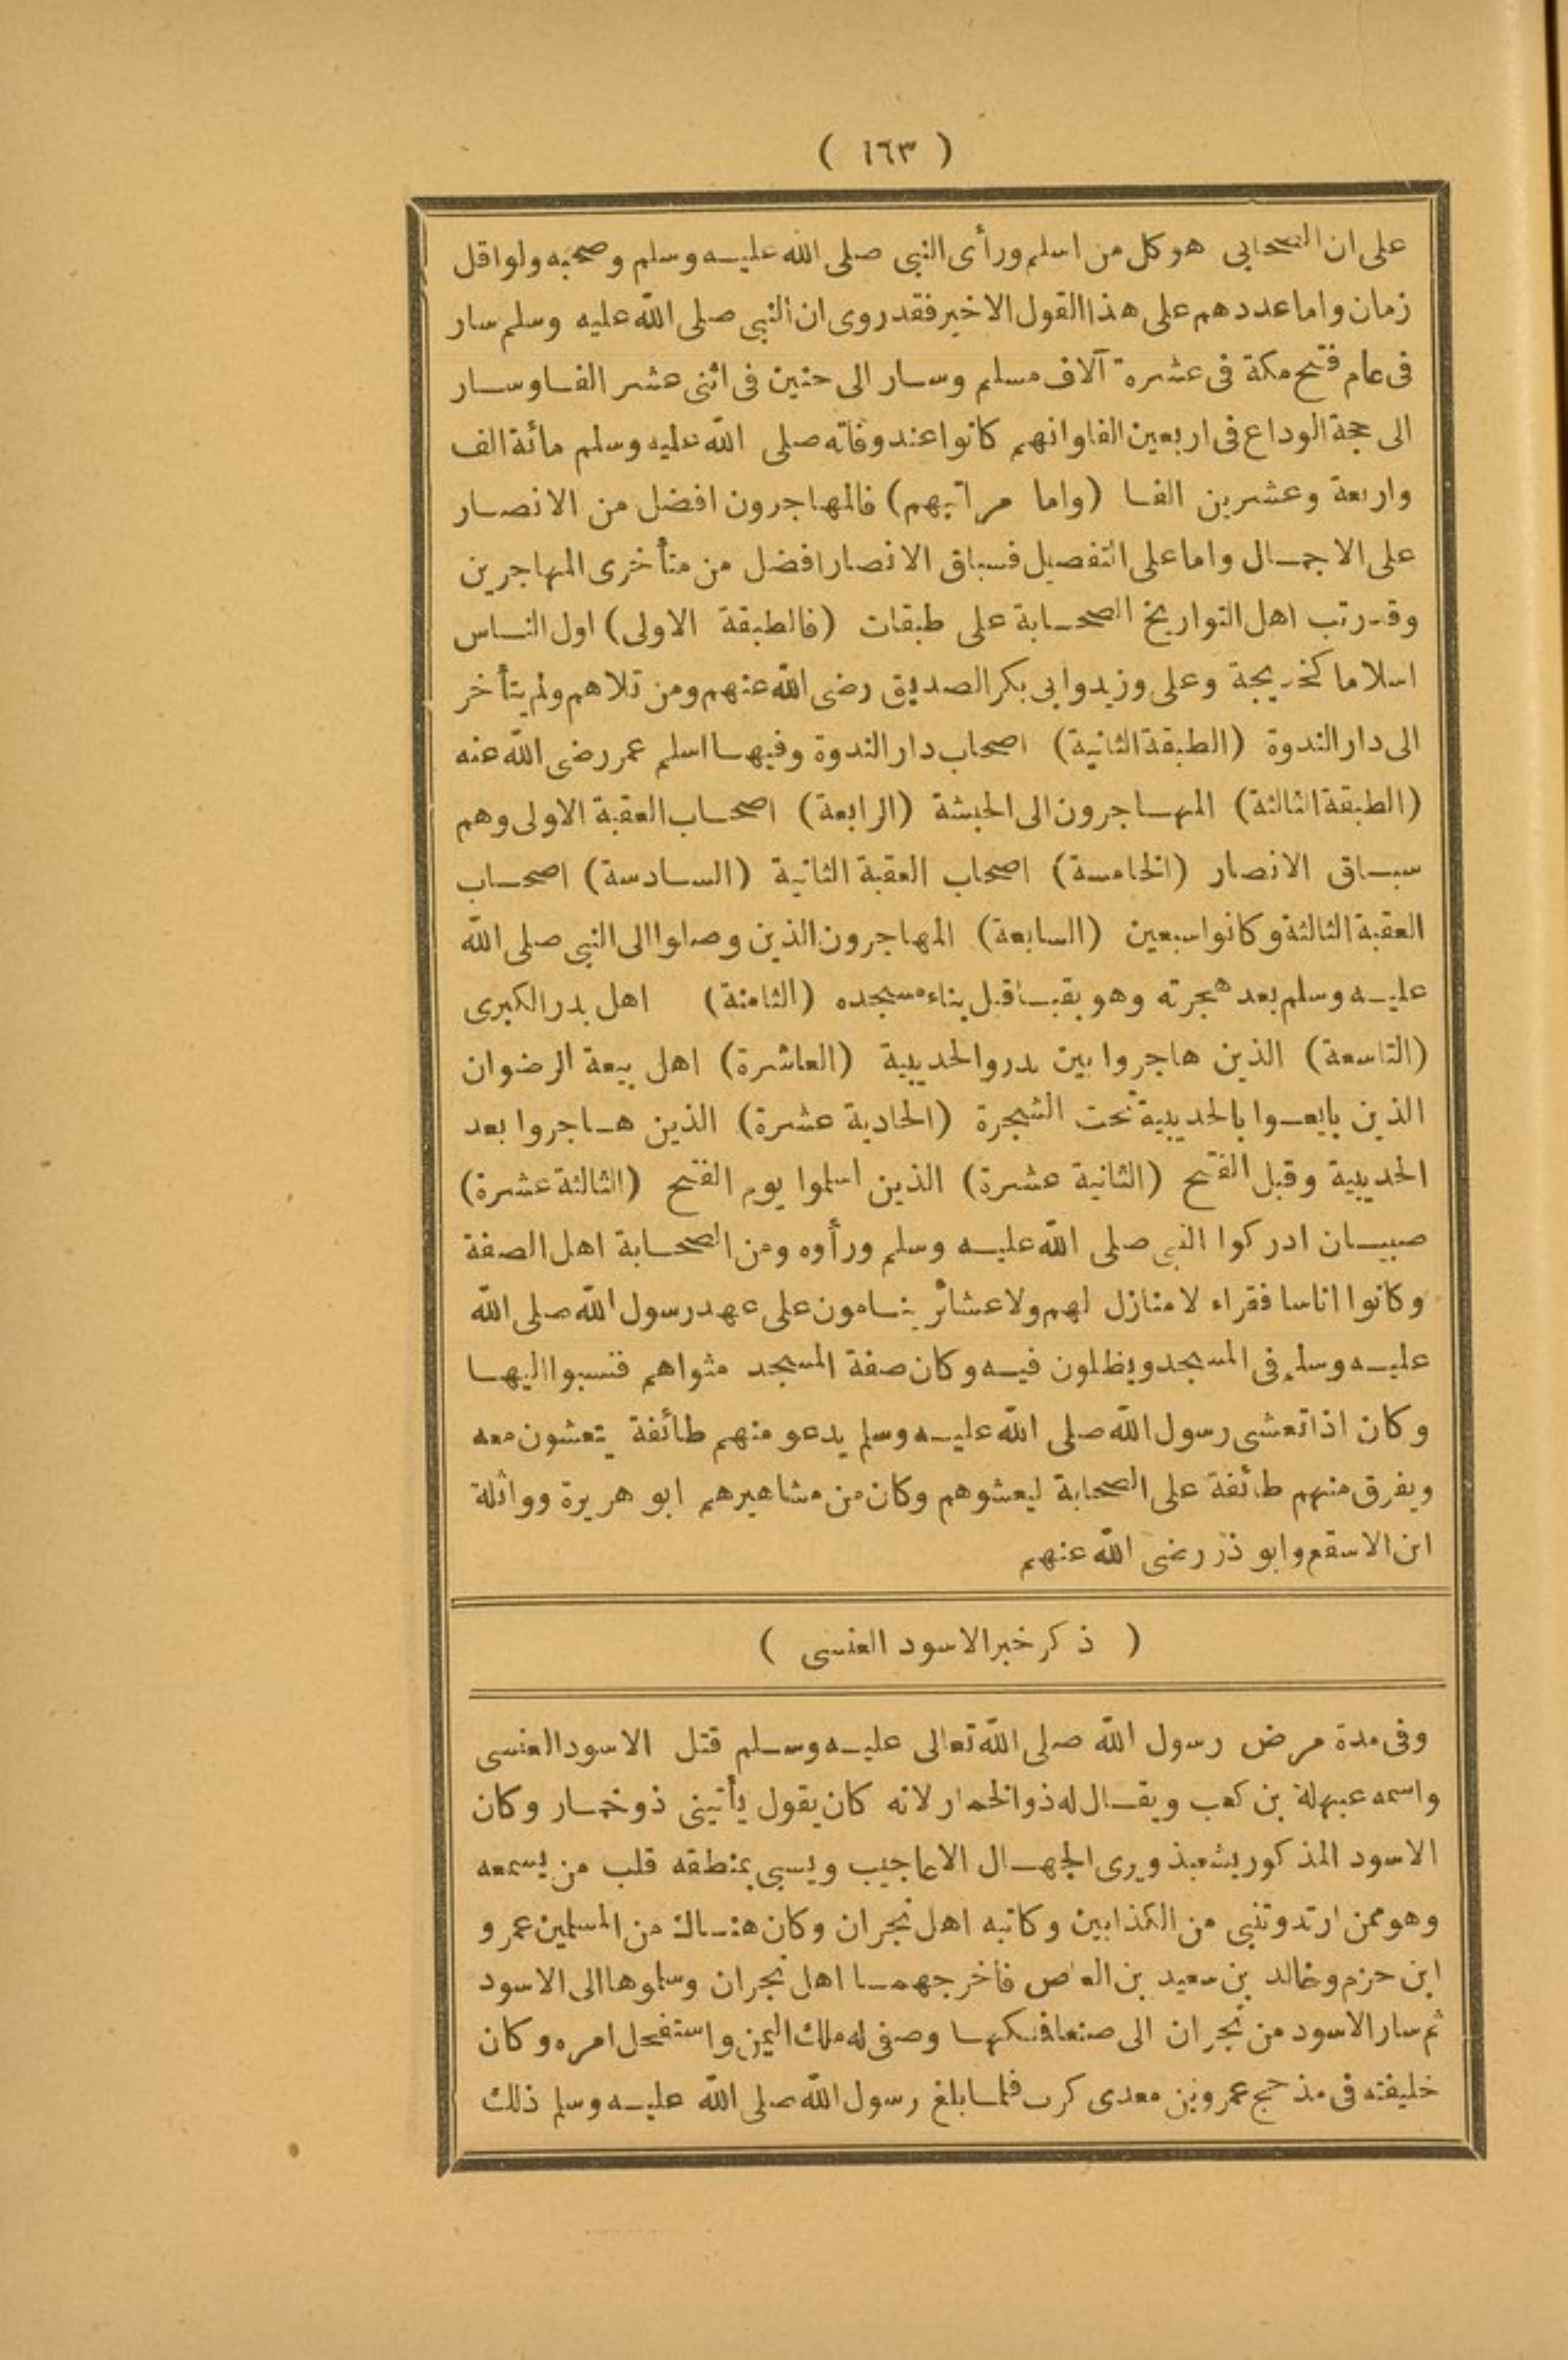 ( ١٦٣ )
على ان الصحابى هو كل من اسلم ورأى النبى صلى الله عليه وسلم وصحبه ولو اقل
زمان واما عددهم على هذا القول الاخير فقد روى ان النبى صلى الله عليه وسلم سار
فى عام فتح مكة فى عشرة آلاف مسلم وسار الى حنين فى اثنى عشر الفا وسار
الى حجة الوداع فى اربعين الفا وانهم كانوا عند وفاته صلى الله عليه وسلم مائة الف
واربعة وعشرين الفا (واما مراتبهم) فالمهاجرون افضل من الانصار
على الاجمال واما على التفصيل فسباق الانصار افضل من متأخرى المهاجرين
وقد رتب اهل التواريخ الصحابة على طبقات (فالطبقة الاولى) اول الناس
اسلاما كخديجة وعلى وزيد وابى بكر الصديق رضى الله عنهم ومن تلاهم ولم يتأخر
الى دار الندوة (الطبقة الثانية) اصحاب دار الندوة وفيها اسلم عمر رضى الله عنه
(الطبقة الثالثة) المهاجرون الى الحبشة (الرابعة) اصحاب العقبة الاولى وهم
سباق الانصار (الخامسة) اصحاب العقبة الثانية (السادسة) اصحاب
العقبة الثالثة وكانوا سبعين (السابعة) المهاجرون الذين وصلوا الى النبى صلى الله
عليه وسلم بعد هجرته وهو بقبا قبل بناء مسجده (الثامنة) اهل بدر الكبرى
(التاسعة) الذين هاجروا بين بدر والحديبية (العاشرة) اهل بيعة الرضوان
الذين بايعوا بالحديبية تحت الشجرة (الحادية عشرة) الذين هاجروا بعد
الحديبية وقبل الفتح (الثانية عشرة) الذين اسلموا يوم الفتح (الثالثة عشرة)
صبيان ادركوا النبى صلى الله عليه وسلم ورأوه ومن الصحابة اهل الصفة
وكانوا اناسا فقراء لا منازل لهم ولا عشائر ينامون على عهد رسول الله صلى الله
عليه وسلم فى المسجد ويظلون فيه وكان صفة المسجد مثواهم فنسبوا اليها
وكان اذا تعشى رسول الله صلى الله عليه وسلم يدعو منهم طائفة يتعشون معه
ويفرق منهم طائفة على الصحابة ليعشوهم وكان من مشاهيرهم ابو هريرة وواثلة
ابن الاسقع وابو ذر رضى الله عنهم
( ذكر خبر الاسود العنسى )
وفى مدة مرض رسول الله صلى الله تعالى عليه وسلم قتل الاسود العنسى
واسمه عبهلة بن كعب ويقال له ذو الخمار لانه كان يقول يأتينى ذو خمار وكان
الاسود المذكور يشعبذ ويرى الجهال الاعاجيب ويسبى بمنطقه قلب من يسمعه
وهو ممن ارتد وتنبى من الكذابين وكاتبه اهل نجران وكان هناك من المسلمين عمرو
ابن حزم وخالد بن سعيد بن العاص فاخرجهما اهل نجران وسلموها الى الاسود
ثم سار الاسود من نجران الى صنعا فملكها وصفى له ملك اليمن واستفحل امره وكان
خليفته فى مذحج عمرو بن معدى كرب فلما بلغ رسول الله صلى الله عليه وسلم ذلك